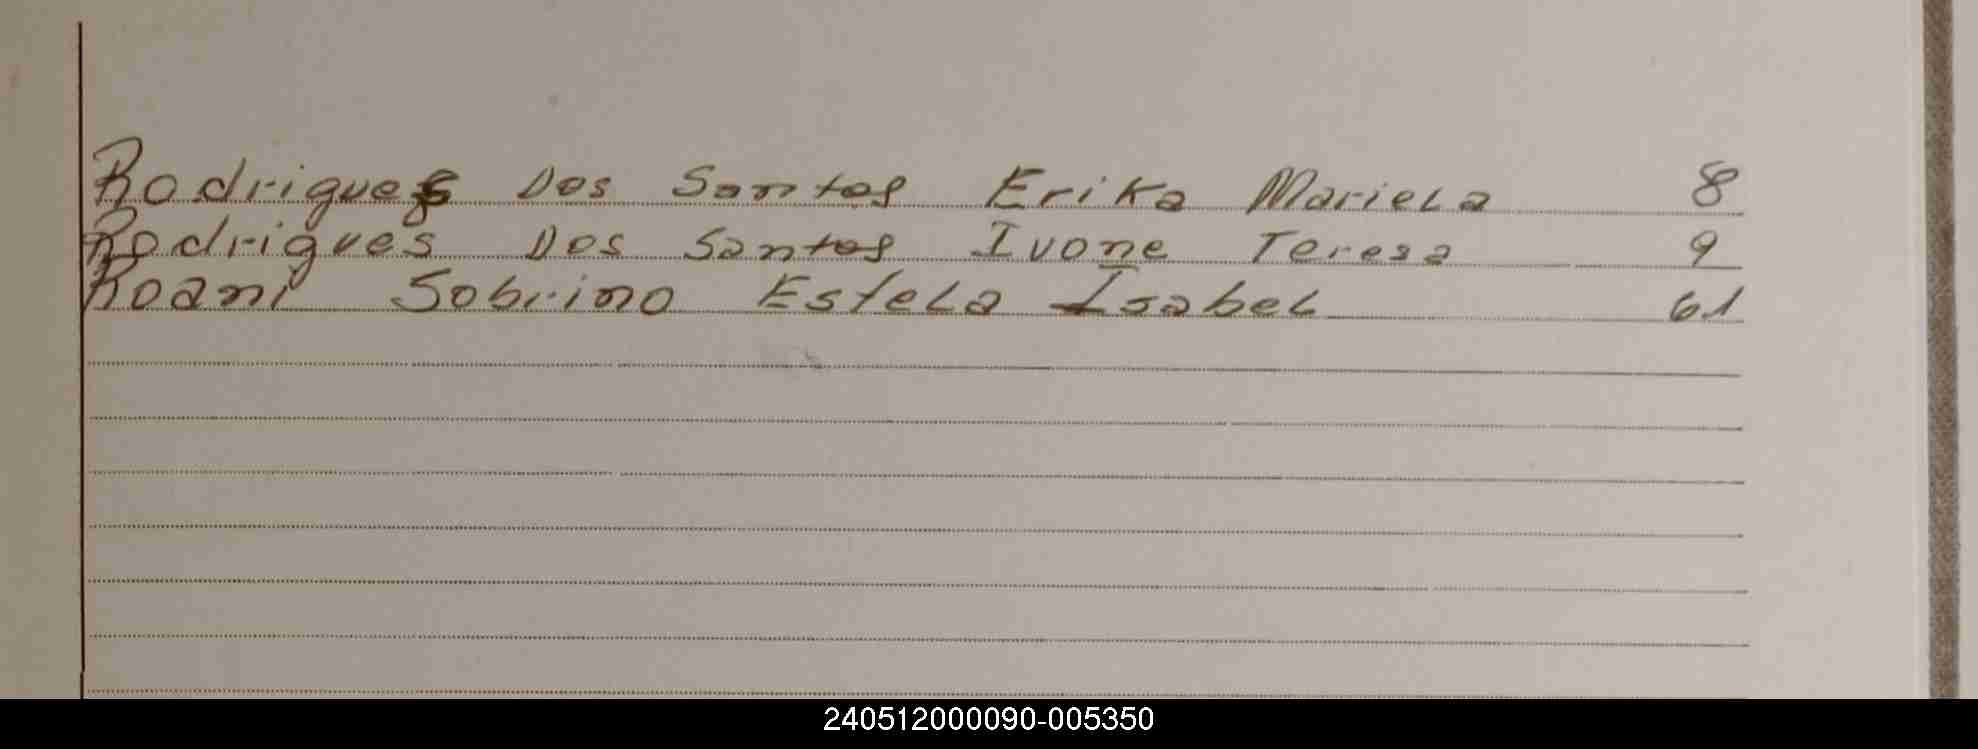 Rodrigues Dos Santos Erika Mariela 8
Rodrigues Dos Santos Ivone Teresa 9
Roani Sobrino Estela Isabel 61
240512000090-005350